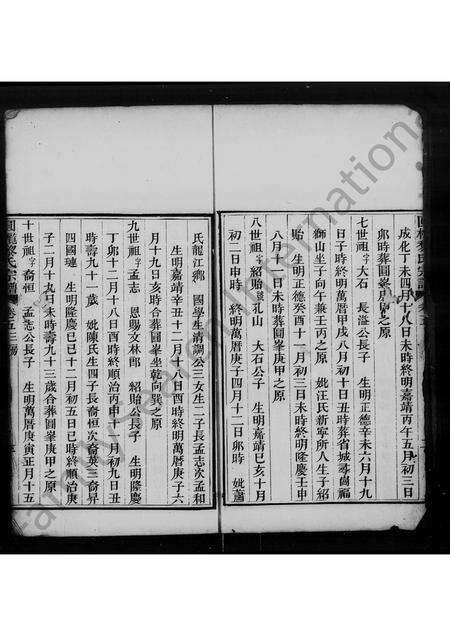 成化丁未四月十八日未時終明嘉靖丙午五月初三日
卯時葬圓峯庚甲之原
七世祖字大石 長溢公長子 生明正德辛未六月十九
日子時終明萬曆甲戌八月初十日丑時葬省城尋齒福
獅山坐子向午兼壬丙之原 妣汪氏新寧所人生子紹
貽 生明正德癸酉十一月初三日未時終明隆慶壬申
八月十一日未時葬圓峯庚甲之原
八世祖字紹貽號孔山 大石公子 生明嘉靖己亥十月
初二日申時 終明萬曆庚子四月十二日卯時 妣蕭
氏龍江鄉 國學生清湖公三女生二子長孟志次孟和
生明嘉靖辛丑十二月十八日酉時終明萬曆庚子六
月十九日亥時合葬圓峯坐乾向巽之原
九世祖字孟志 恩賜文林郎 紹貽公長子 生明隆慶
丁卯十二月十八日酉時終順治丙申十一月初九日丑
時壽九十一歲 妣陳氏生四子長裔恒次裔英三裔昇
四國璉 生明隆慶己巳十二月初五日巳時終順治庚
子二月十九日未時壽九十三歲合葬圓峯庚甲之原
十世祖字裔恒 孟志公長子 生明萬曆庚寅正月十五
氏宗譜 卷五三房
FamilySearch International